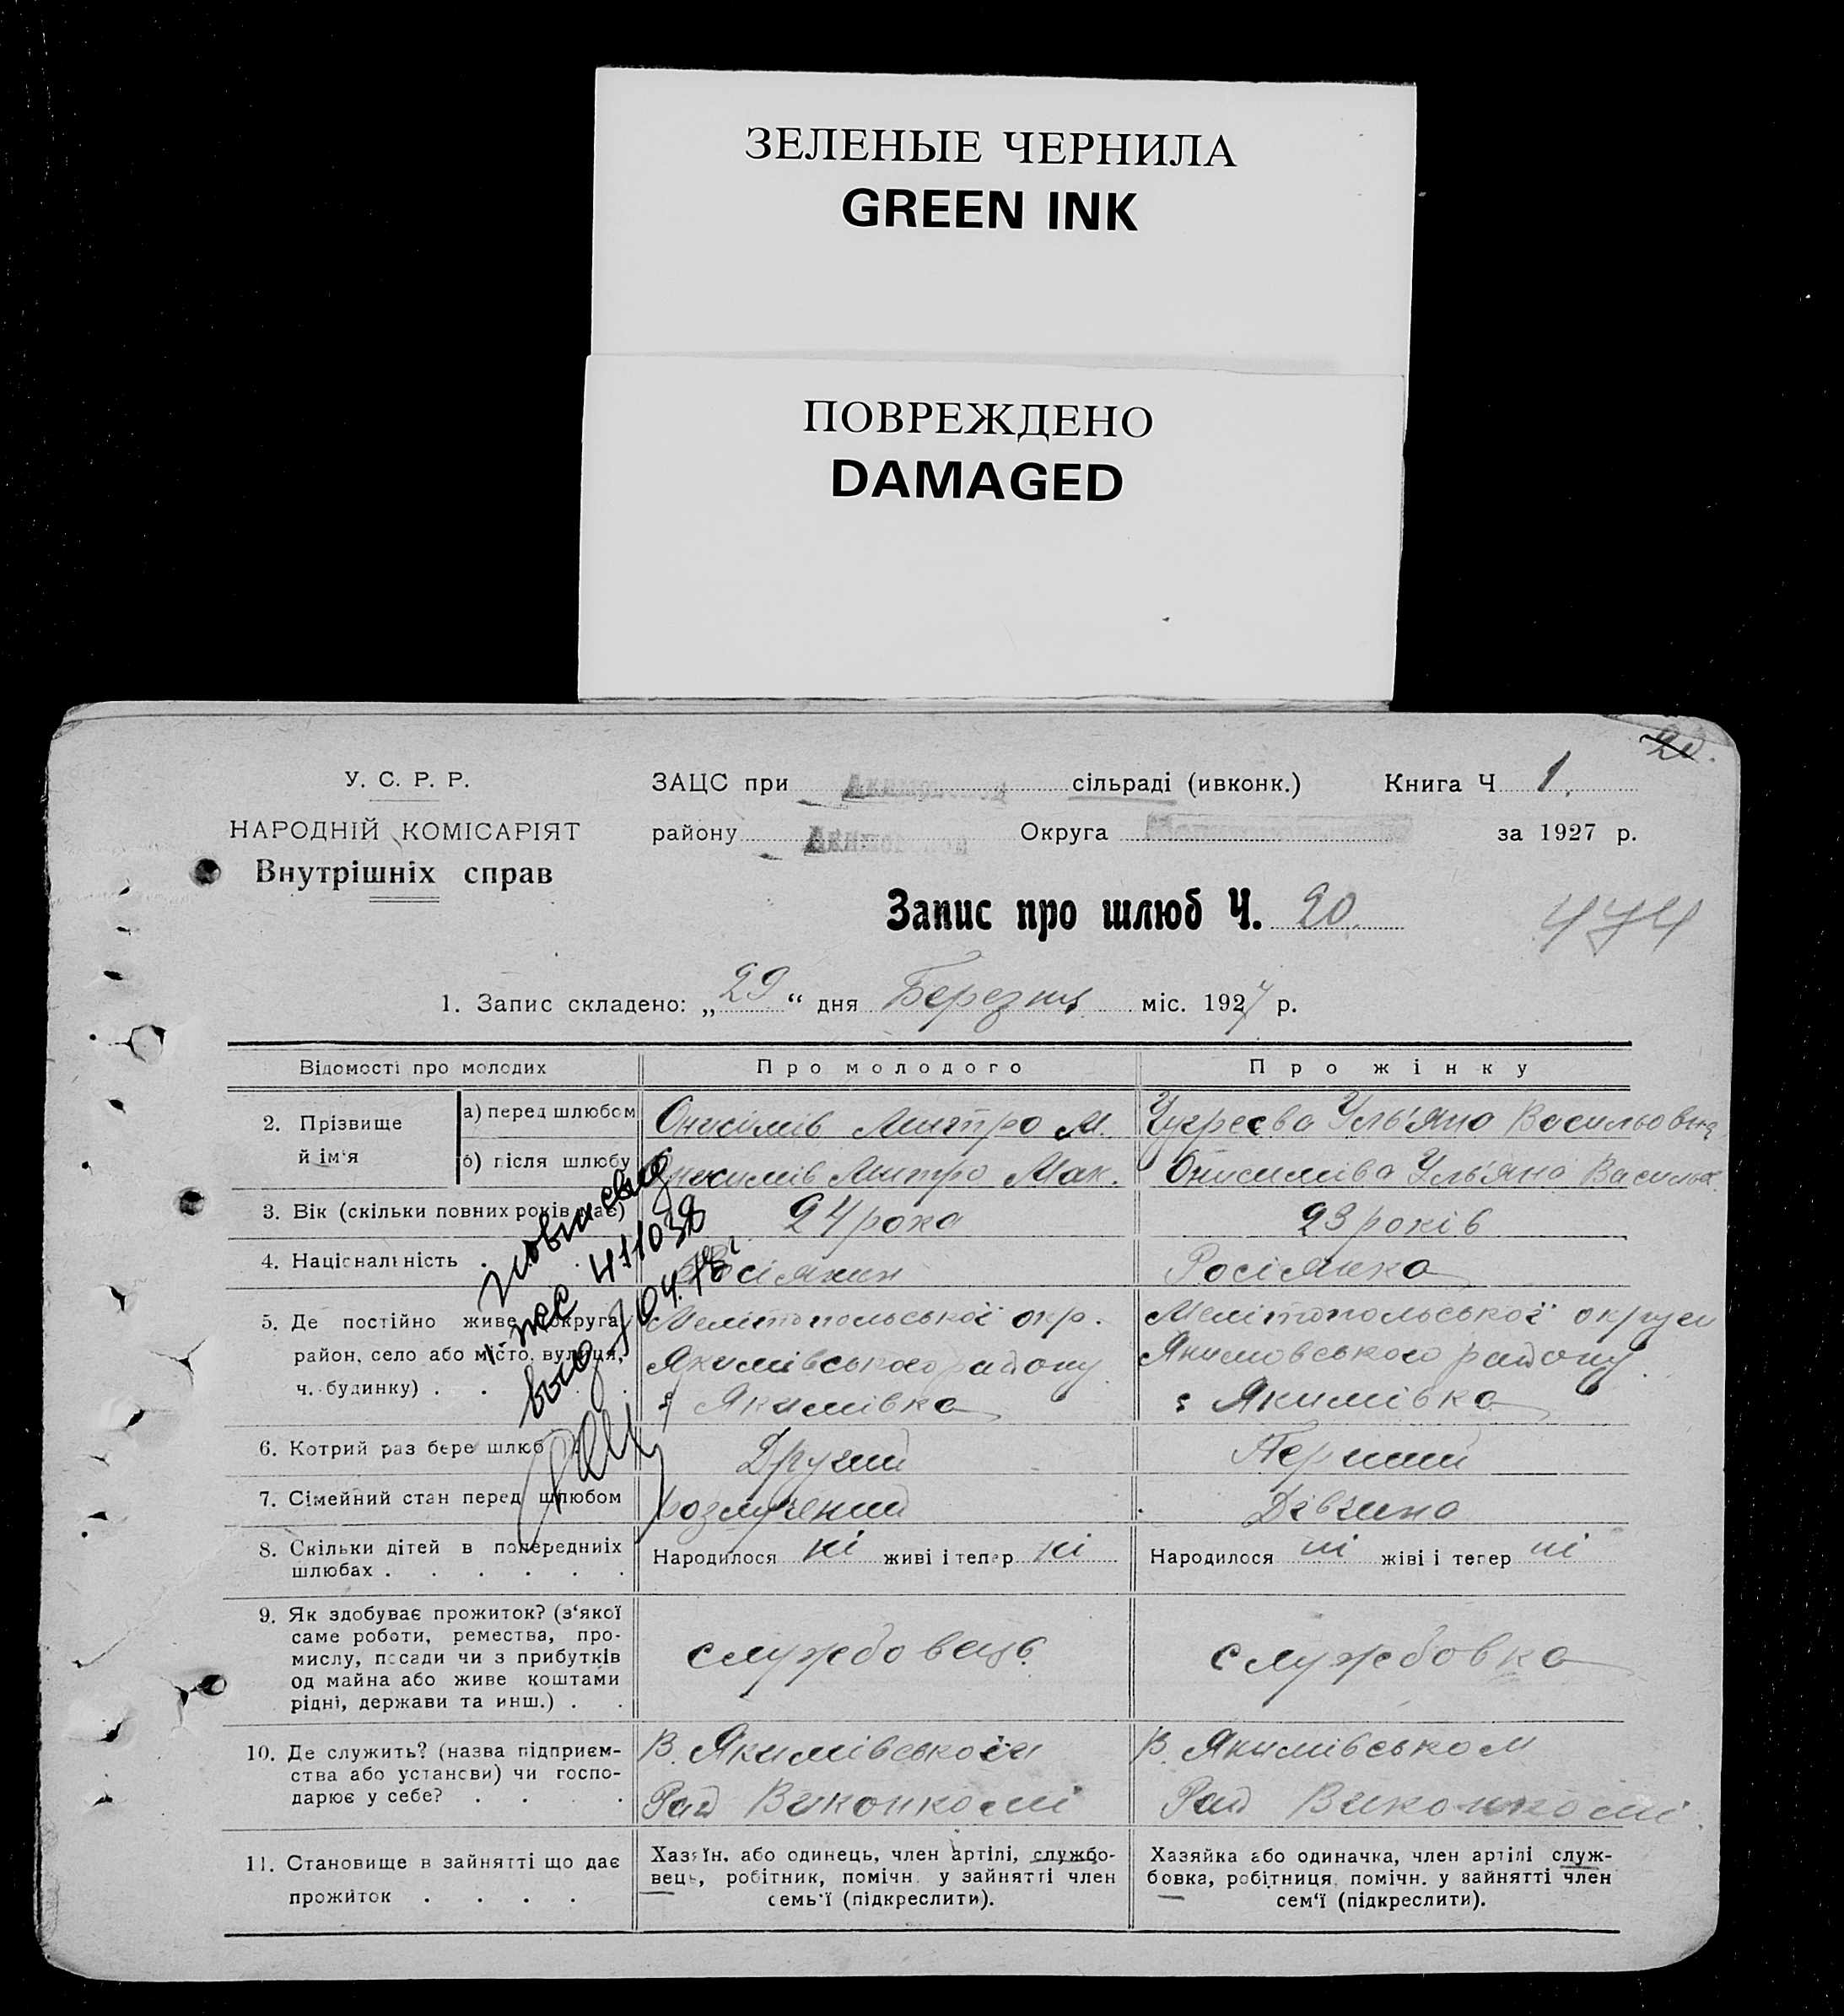 ЗЕЛЕНЫЕ ЧЕРНИЛА
GREEN INK
ПОВРЕЖДЕНО
DAMAGED
20.
У. С. Р. Р.
НАРОДНІЙ КОМІСАРІЯТ
Внутрішніх справ
ЗАЦС при сільраді (ивконк.) Книга Ч 1.
району Округа за 1927 р.
Запис про шлюб Ч. 20.
474
1. Запис складено: „29“ дня Березня міс. 1927 р.
Відомості про молодих Про молодого Про жінку
2. Прізвище й ім'я
а) перед шлюбом Онисімів Митро М. Ульяна Васильовна
б) після шлюбу Онисимів Митро Мак. Онисимива Ульяна Василь
3. Вік (скільки повних років має) 24 рока 23 років
4. Національність . Росіянин Росіянка
5. Де постійно живе (округа, Мелітопольської окр. Мелітопольської округи
район, село або місто, вулиця, Якимівського району Якимовського району
ч. будинку) . . . Якимівка с Якимівка
6. Котрий раз бере шлюб Другий Перший
7. Сімейний стан перед шлюбом розлучений Дівчина
8. Скільки дітей в попередниіх
шлюбах . . . . . .
Народилося ні живі і тепер ні Народилося ні жіві і тепер ні
9. Як здобуває прожиток? (з'якої
саме роботи, ремества, про-
мислу, посади чи з прибутків
од майна або живе коштами
рідні, держави та инш.) . .
службовець службовка
10. Де служить? (назва підприєм-
ства або установи) чи госпо-
дарює у себе? . . . .
В. Якимівськом В. Якимівськом
Рай Виконкомі Рай Виконкомі
11. Становище в зайнятті що дає
прожиток . . . .
Хазяїн, або одинець, член артілі, службо-
вець, робітник, помічн. у зайнятті член
семь'ї (підкреслити).
Хазяйка або одиначка, член артілі служ-
бовка, робітниця, помічн. у зайнятті член
сем'ї (підкреслити).
411038